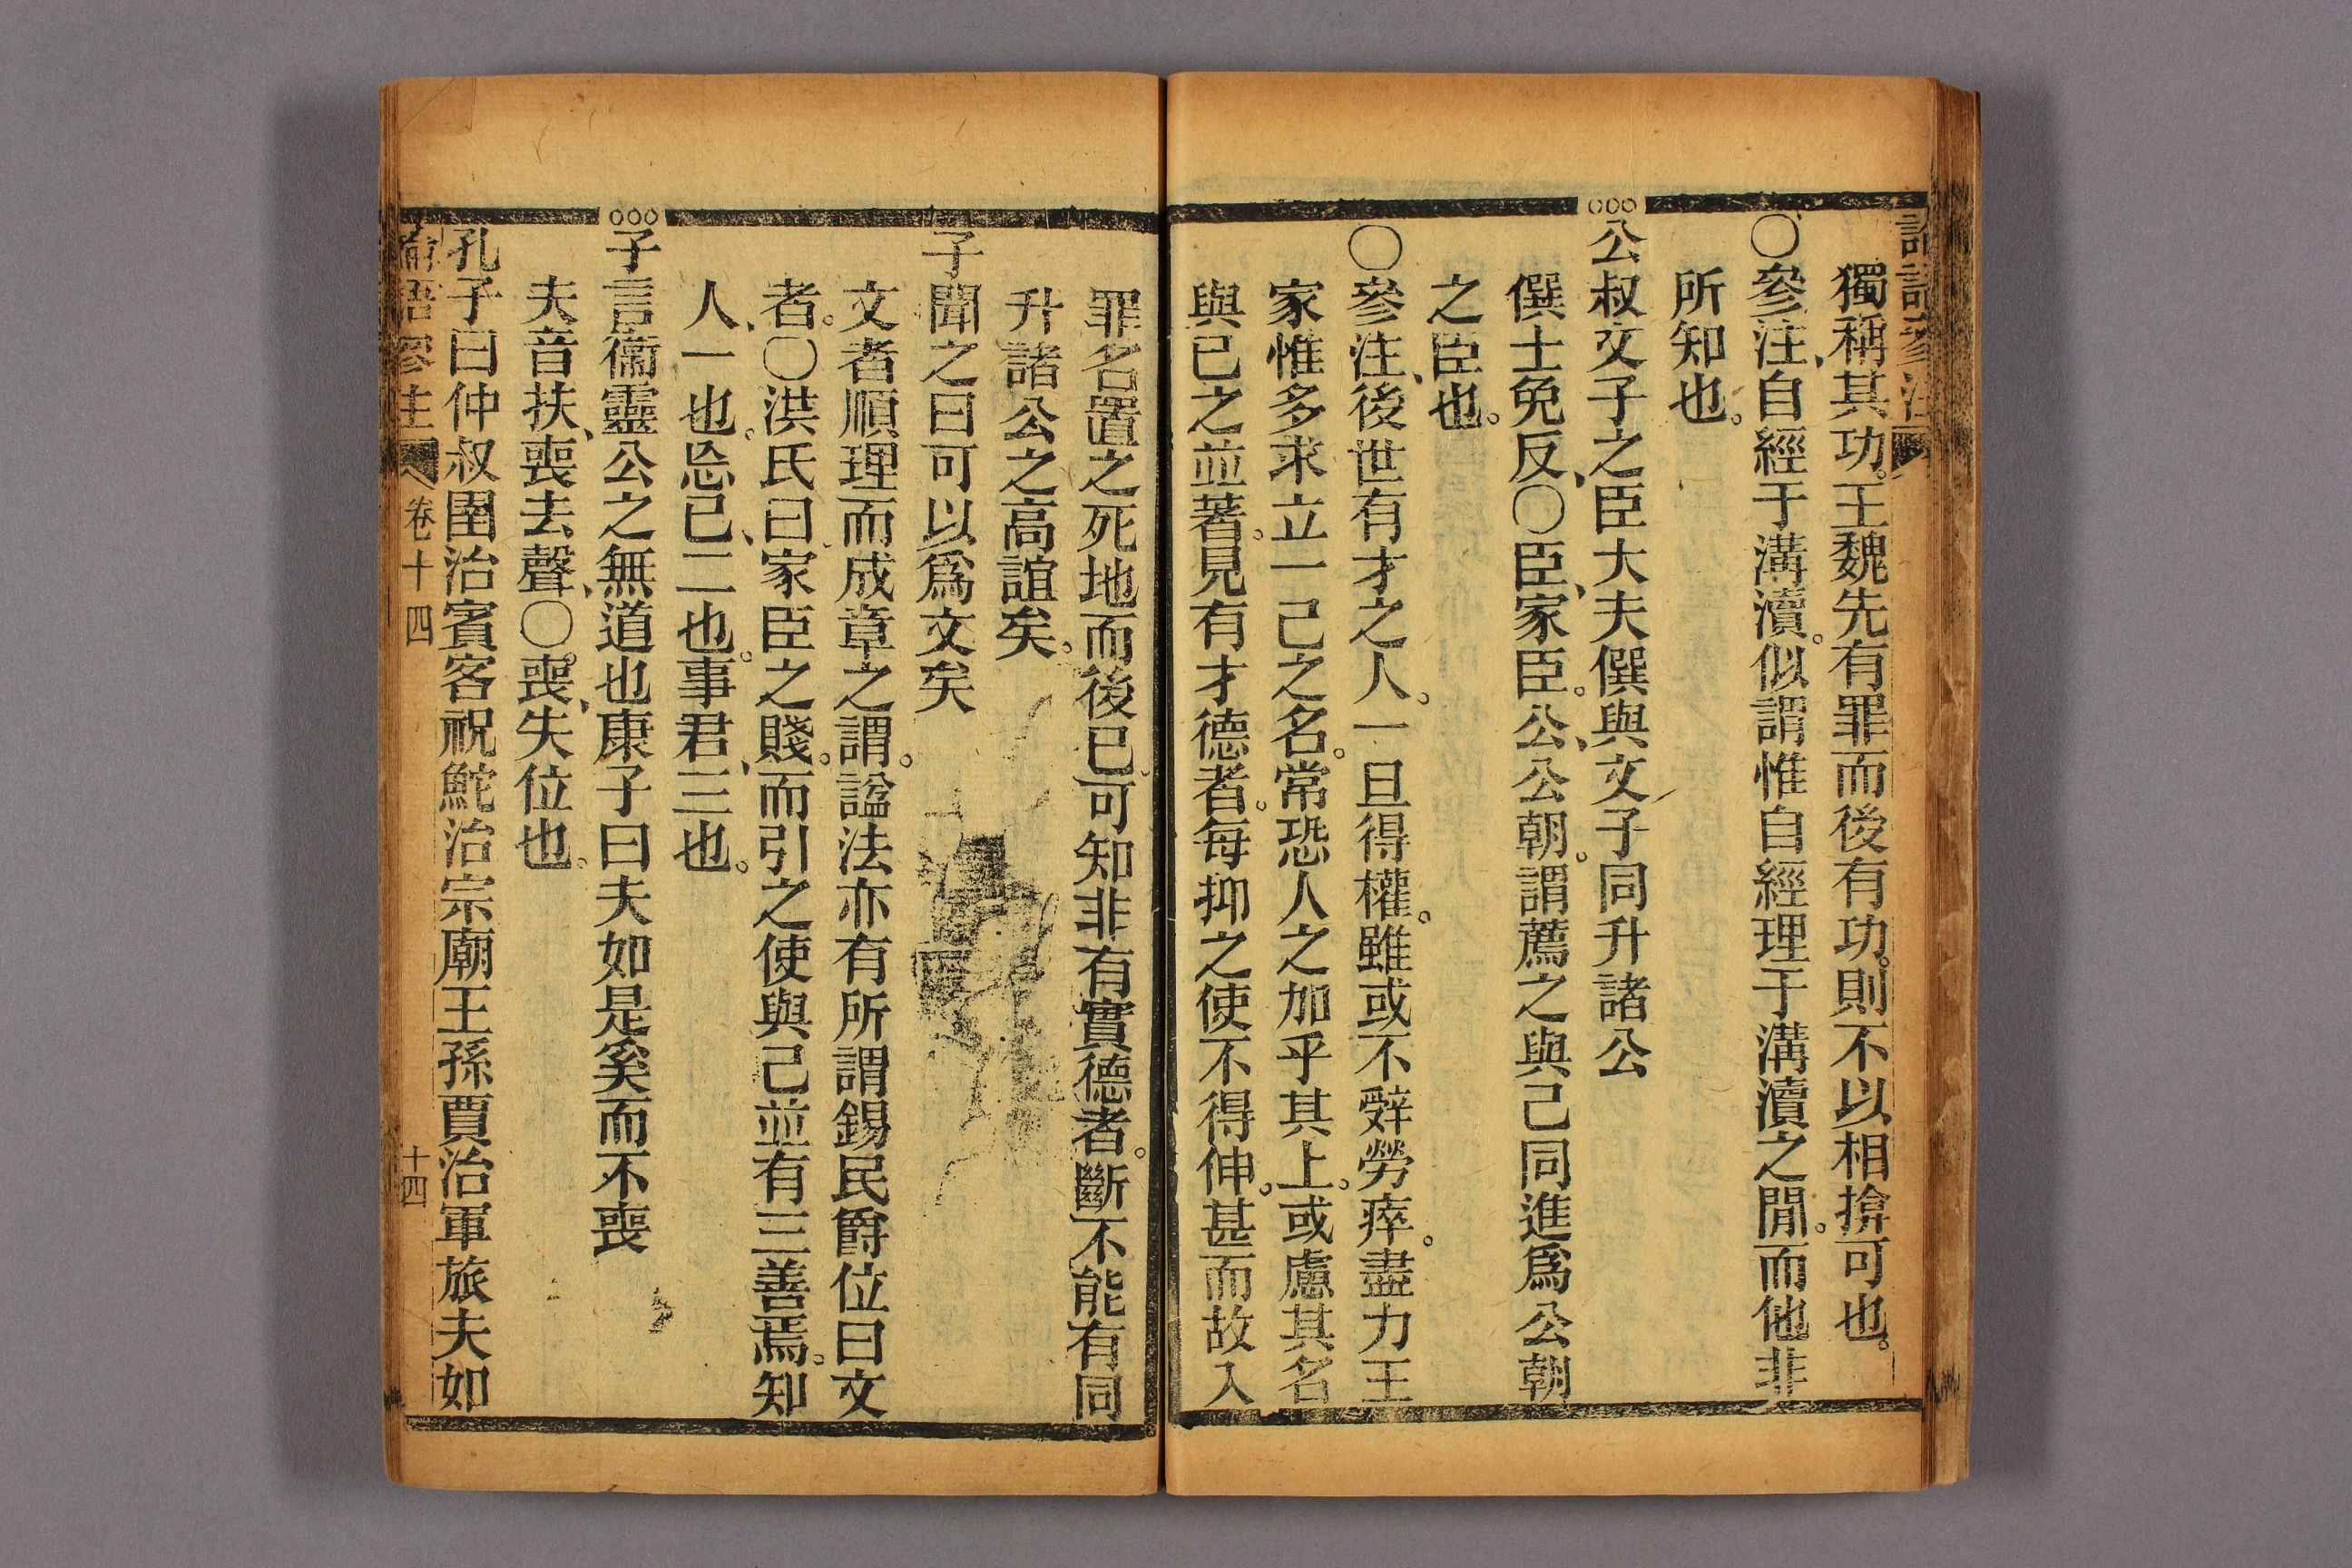 獨稱其功。王魏先有罪而後有功。則不以相揜可也。
〇參注、自經于溝瀆。似謂惟自經理于溝瀆之閒。而他非
所知也。
公叔文子之臣大夫僎與文子同升諸公
僎士免反、〇臣、家臣。公、公朝。謂薦之與己同進爲公朝
之臣也。
〇參注、後世有才之人。一旦得權。雖或不辤勞瘁。盡力王
家惟多求立一己之名。常恐人之加乎其上。或慮其名
與已之並著。見有才德者。每抑之使不得伸。甚而故入
罪名置之死地而後已可知非有實德者。斷不能有同
升諸公之高誼矣。
子聞之曰可以爲文矣
文者順理而成章之謂。諡法亦有所謂錫民爵位曰文
者。〇洪氏曰家臣之賤。而引之使與己並有三善焉。知
人、一也。忘己、二也。事君、三也。
子言衞靈公之無道也康子曰夫如是奚而不喪
夫音扶、喪去聲、〇喪、失位也。
孔子曰仲叔圉治賓客祝鮀治宗廟王孫賈治軍旅夫如
論語參注 卷十四 十四